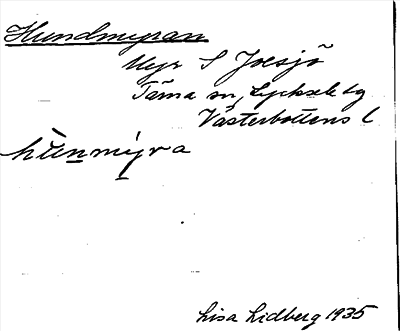 Hundmyran
Myr S Joesjö
Tärna sn, Lycksele lg
Västerbottens l
Lisa Lidberg 1935